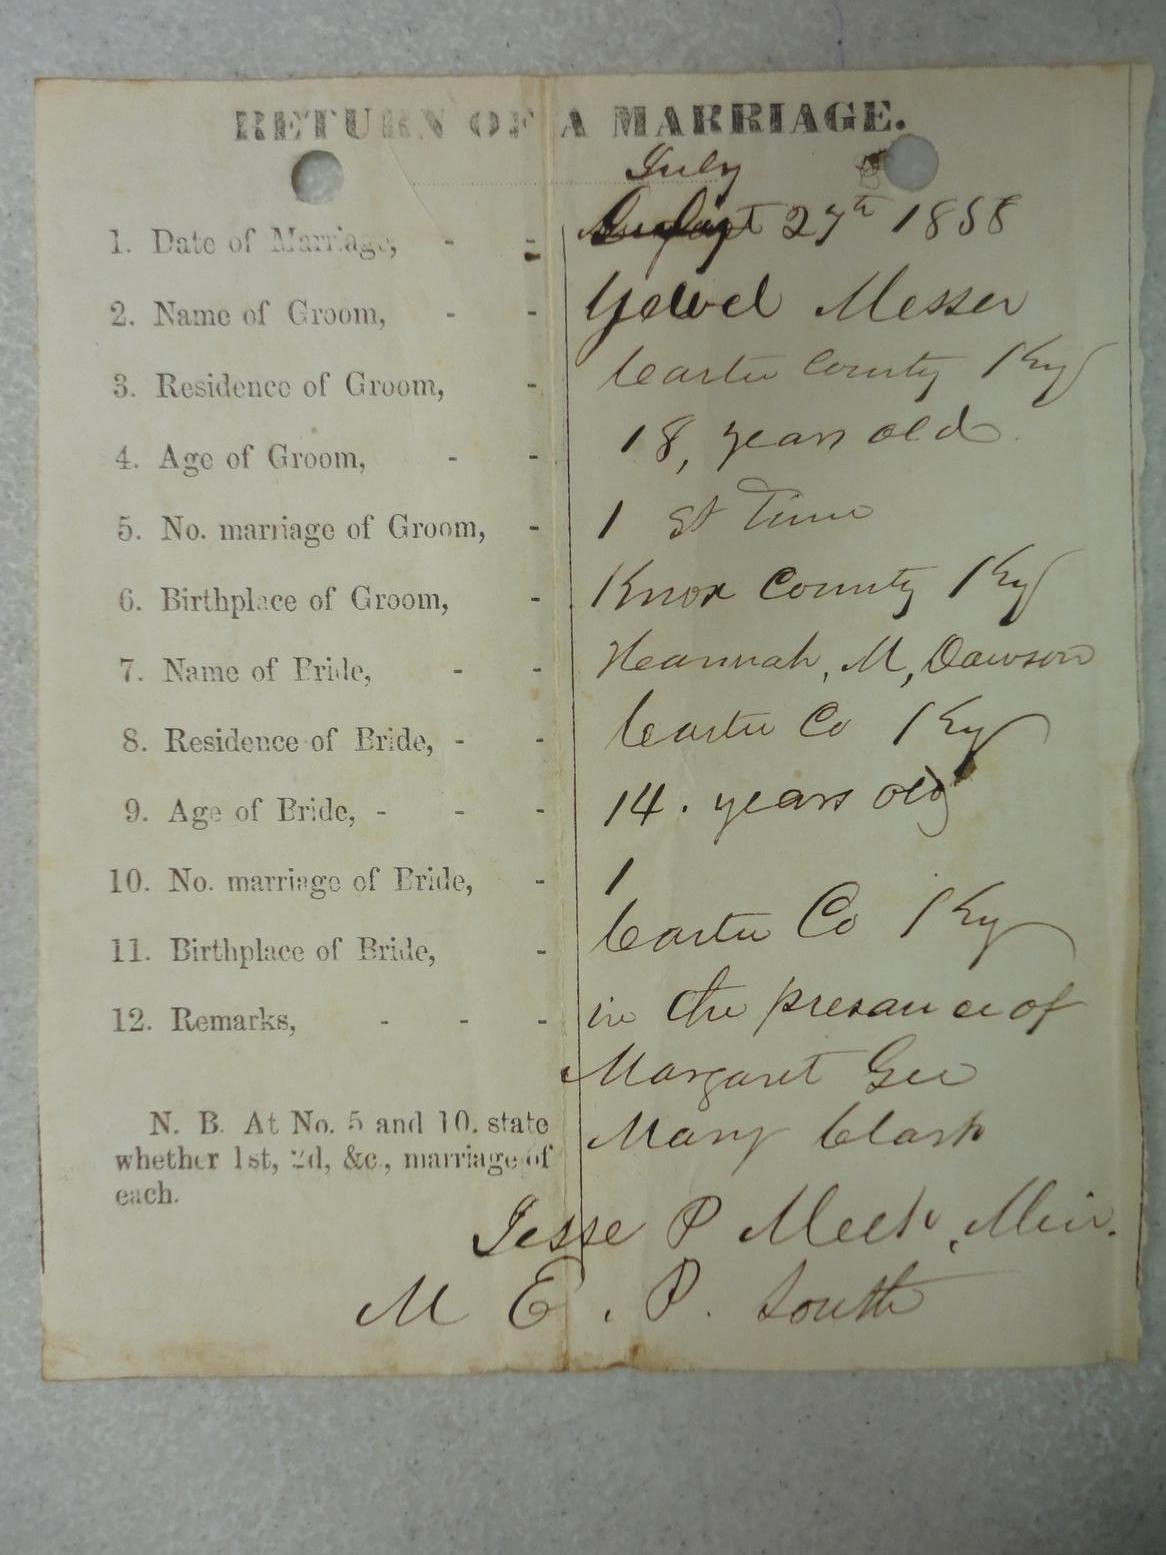 RETURN OF A MARRIAGE.
July
1. Date of Marriage, - - August 27th 1858
2. Name of Groom, - - Yewel Messer
3. Residence of Groom, - Carter County Ky
4. Age of Groom, - - 18, years old
5. No. marriage of Groom, - 1 st Time
6. Birthplace of Groom, - Knox County Ky
7. Name of Bride, - - Heannah, M, Dawson
8. Residence of Bride, - - Carter Co Ky
9. Age of Bride, - - - 14. years old
10. No. marriage of Bride, - 1
11. Birthplace of Bride, - Carter Co Ky
12. Remarks, - - - in the presance of
Margaret Gee
N. B. At No. 5 and 10. state Mary Clark
whether 1st, 2d, &c., marriage of
each.
Jesse P Meek, Min.
M E. P. South